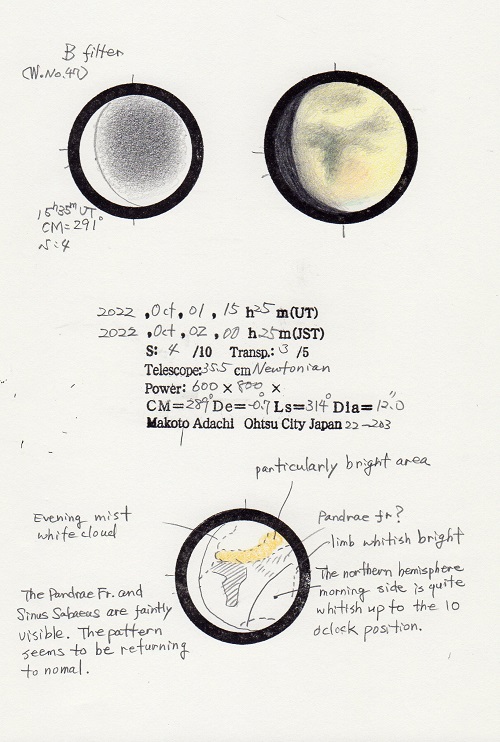 B filter
(W.No.47)
15h35m UT
CM=291°
S:4
2022 ,Oct, 01 , 15 h25 m(UT)
2022 ,Oct, 02, 00 h25m(JST)
S: 4 /10 Transp.: 3 /5
Telescope:35.5 cm Newtonian
Power: 600 × 800 ×
CM=289° De=-0.7 Ls=314° Dia=12.0"
Makoto Adachi Ohtsu City Japan 22-203
particularly bright area
Evening mist
white cloud
Pandrae fr?
limb whitish bright
The northern hemisphere
morning side is quite
whitish up to the 10
oclock position.
The Pandrae Fr. and
Sinus Sabaeus are faintly
visible. The pattern
seems to be returning
to nomal.